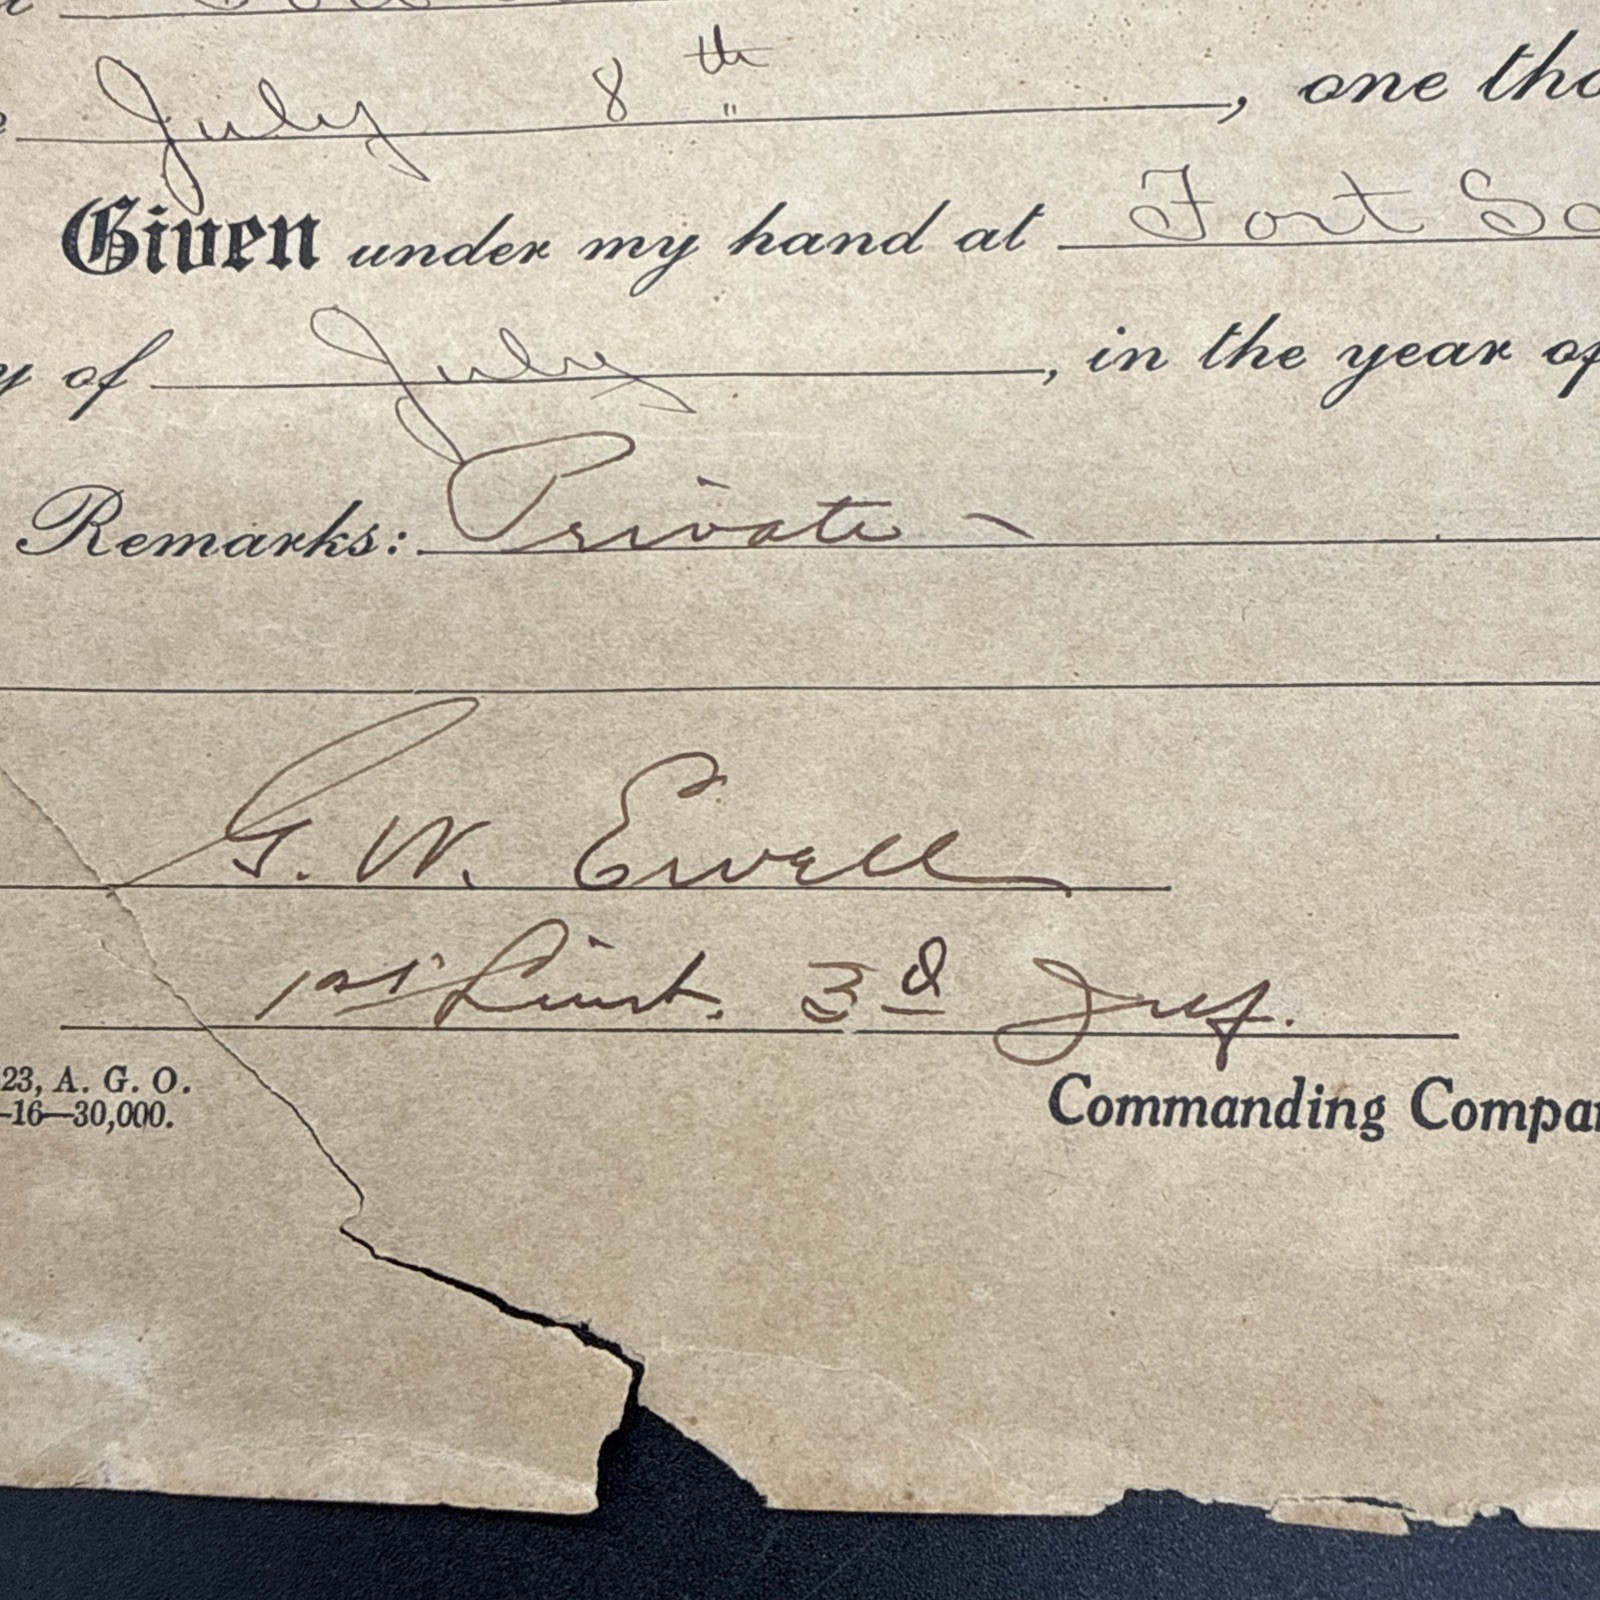 July 8th, one tho
Given under my hand at Fort Sc
y of July, in the year of
Remarks: Private -
G. W. Ewell
1st Lieut. 3d Inf.
23, A. G. O.
-16—30,000.
Commanding Compa